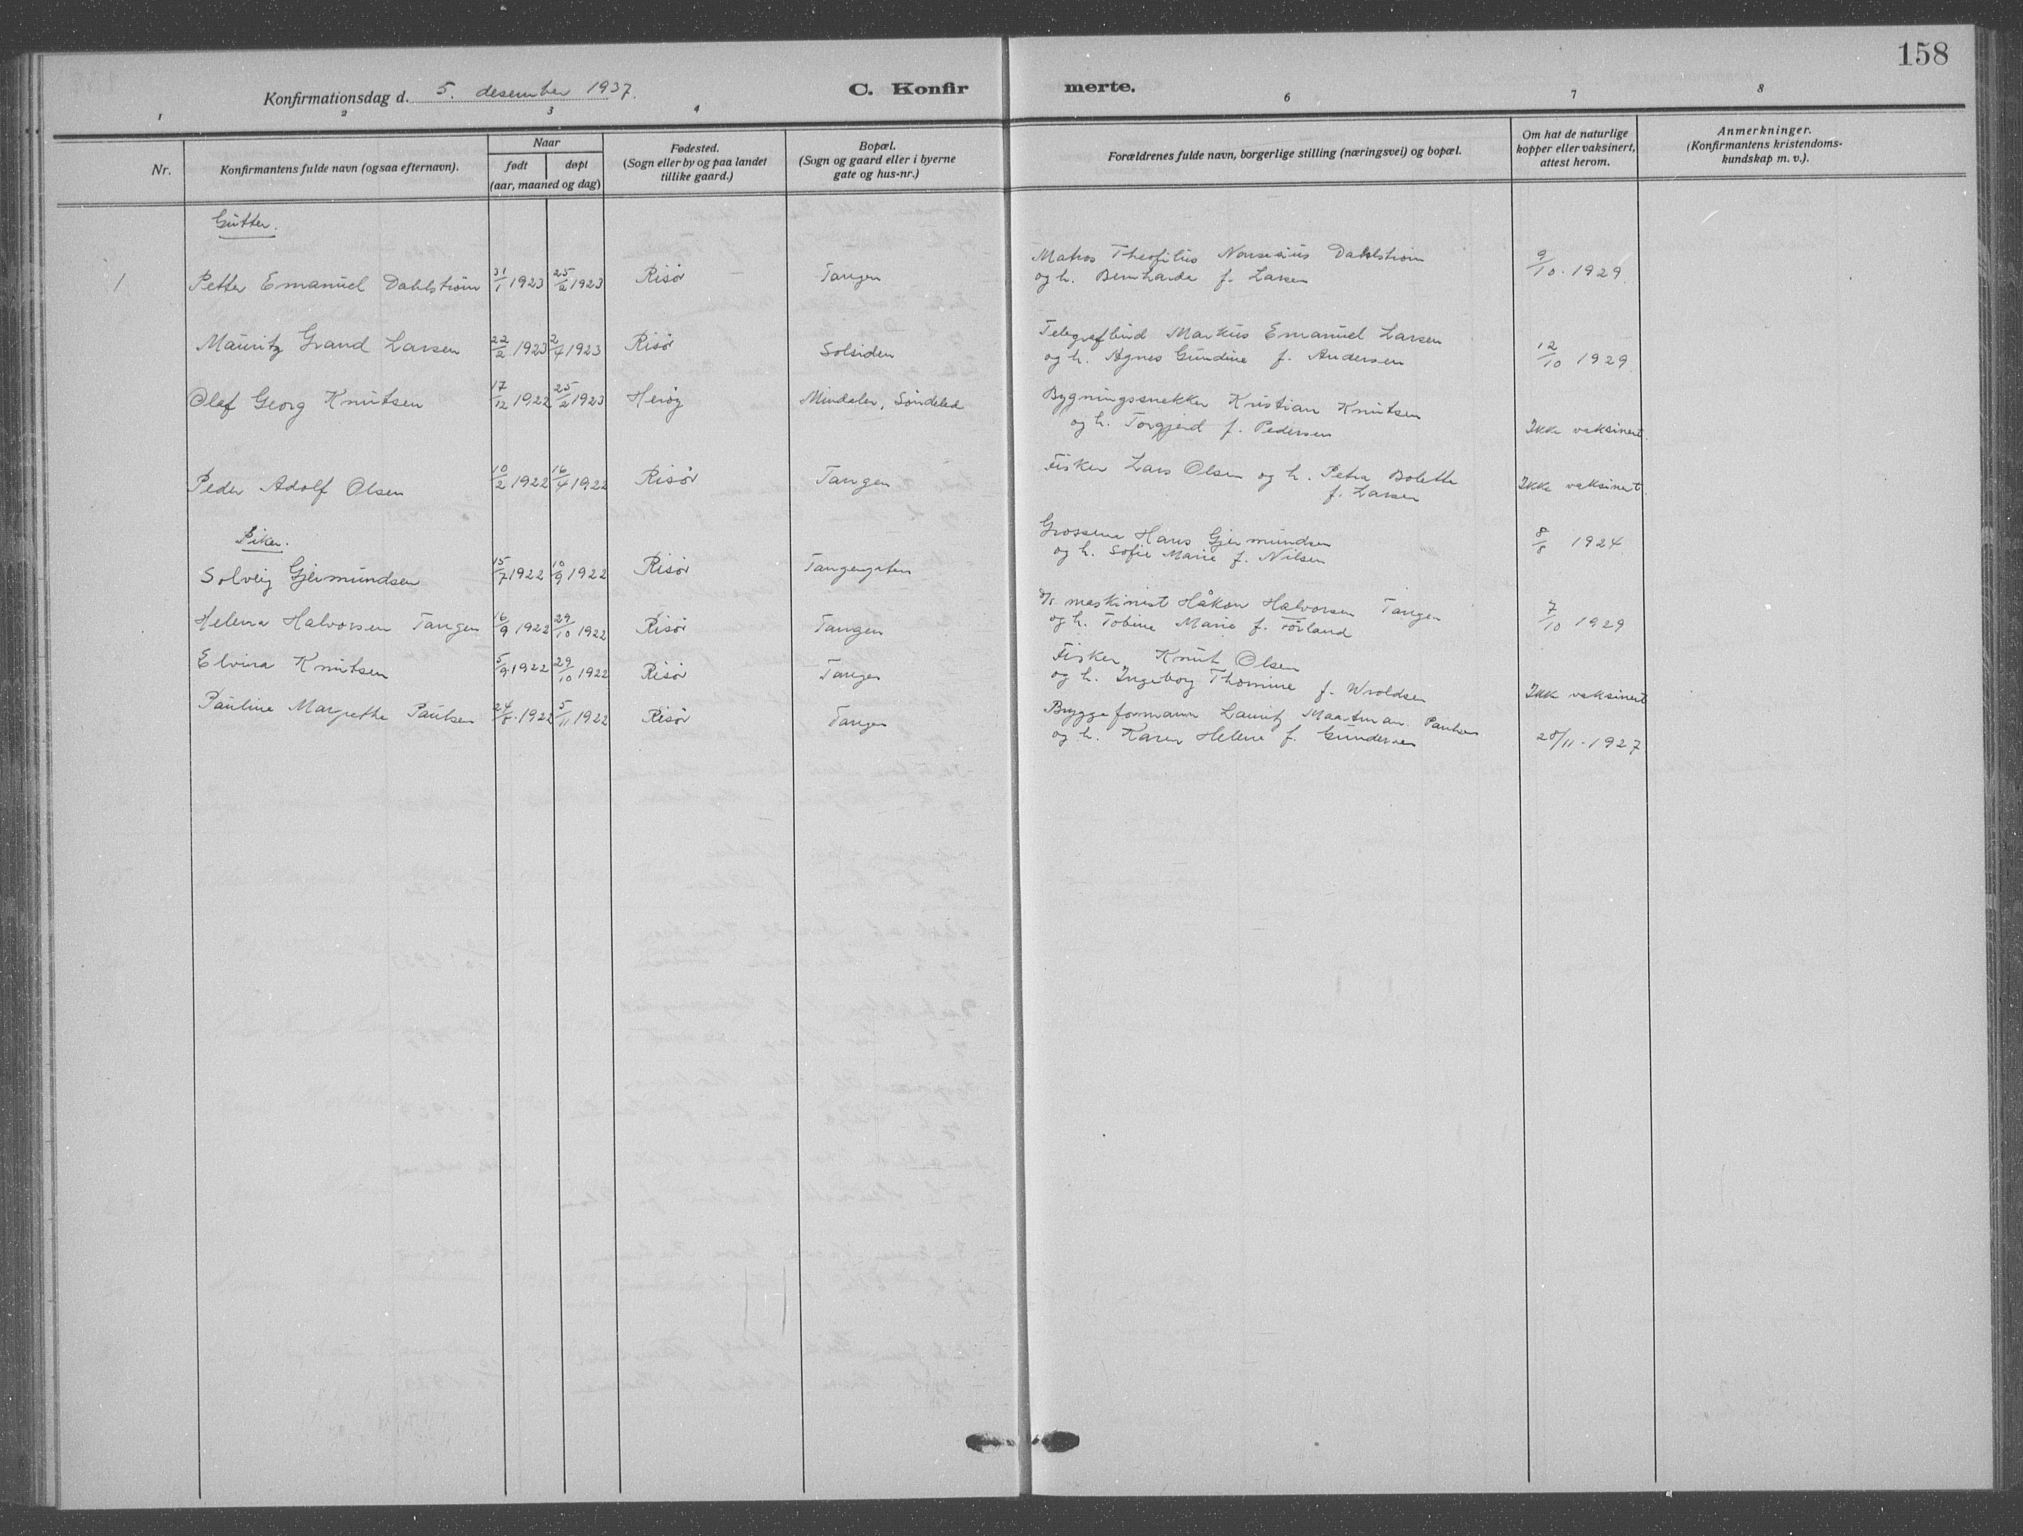 158
Konfirmationsdag d. 5. desember 1937.
C. Konfirmerte.
1 2 3 4 6 7 8
Nr.
Konfirmantens fulde navn (ogsaa efternavn).
Naar
født døpt
(aar, maaned og dag)
Fødested.
(Sogn eller by og paa landet
tillike gaard.)
Bopæl.
(Sogn og gaard eller i byerne
gate og hus-nr.)
Forældrenes fulde navn, borgerlige stilling (næringsvei) og bopæl.
Om hat de naturlige
kopper eller vaksinert,
attest herom.
Anmerkninger.
(Konfirmantens kristendoms-
kundskap m. v.).
Gutter.
1 Petter Emanuel Dahlstrøm 31/1 1923 25/2 1923 Risør Tangen
Matros Theofilus Dahlstrøm
og h. Bernharda f. Larsen
9/10. 1929.
Mauritz Grand Larsen 22/2 1923 2/4 1923 Risør Solsiden
Telegrafbud Markus Emanuel Larsen
og h. Agnes Gundine f. Andersen
12/10 1929.
Olaf Georg Knutsen 17/12 1922 25/2 1923 Herøy Mindalen, Søndeled
Bygningssnekker Kristian Knutsen
og h. Torgjerd f. Pedersen
Ikke vaksinert.
Peder Adolf Olsen 10/2 1922 16/4 1922 Risør Tangen
Fisker Lars Olsen og h. Petra Bolette
f. Larsen
Ikke vaksinert.
Piker.
Solveig Gjermundsen 15/7 1922 10/9 1922 Risør Tangengaten
Grosserer Hans Gjermundsen
og h. Sofie Marie f. Nilsen
8/8 1924
Helena Halvorsen Tangen 16/9 1922 29/10 1922 Risør Tangen
maskinist Håkon Halvorsen Tangen
og h. Tobine Marie f. Førland
7/10 1929
Elvira Knutsen 5/9 1922 29/10 1922 Risør Tangen
Fisker Knut Olsen
og h. Ingeborg Thomine f. Wroldsen
Ikke vaksinert
Pauline Margrethe Paulsen 24/8. 1922 5/11 1922 Risør Tangen
Bryggeformann Lauritz Maatman Paulsen
og h. Karen Helene f. Gundersen
28/11. 1927